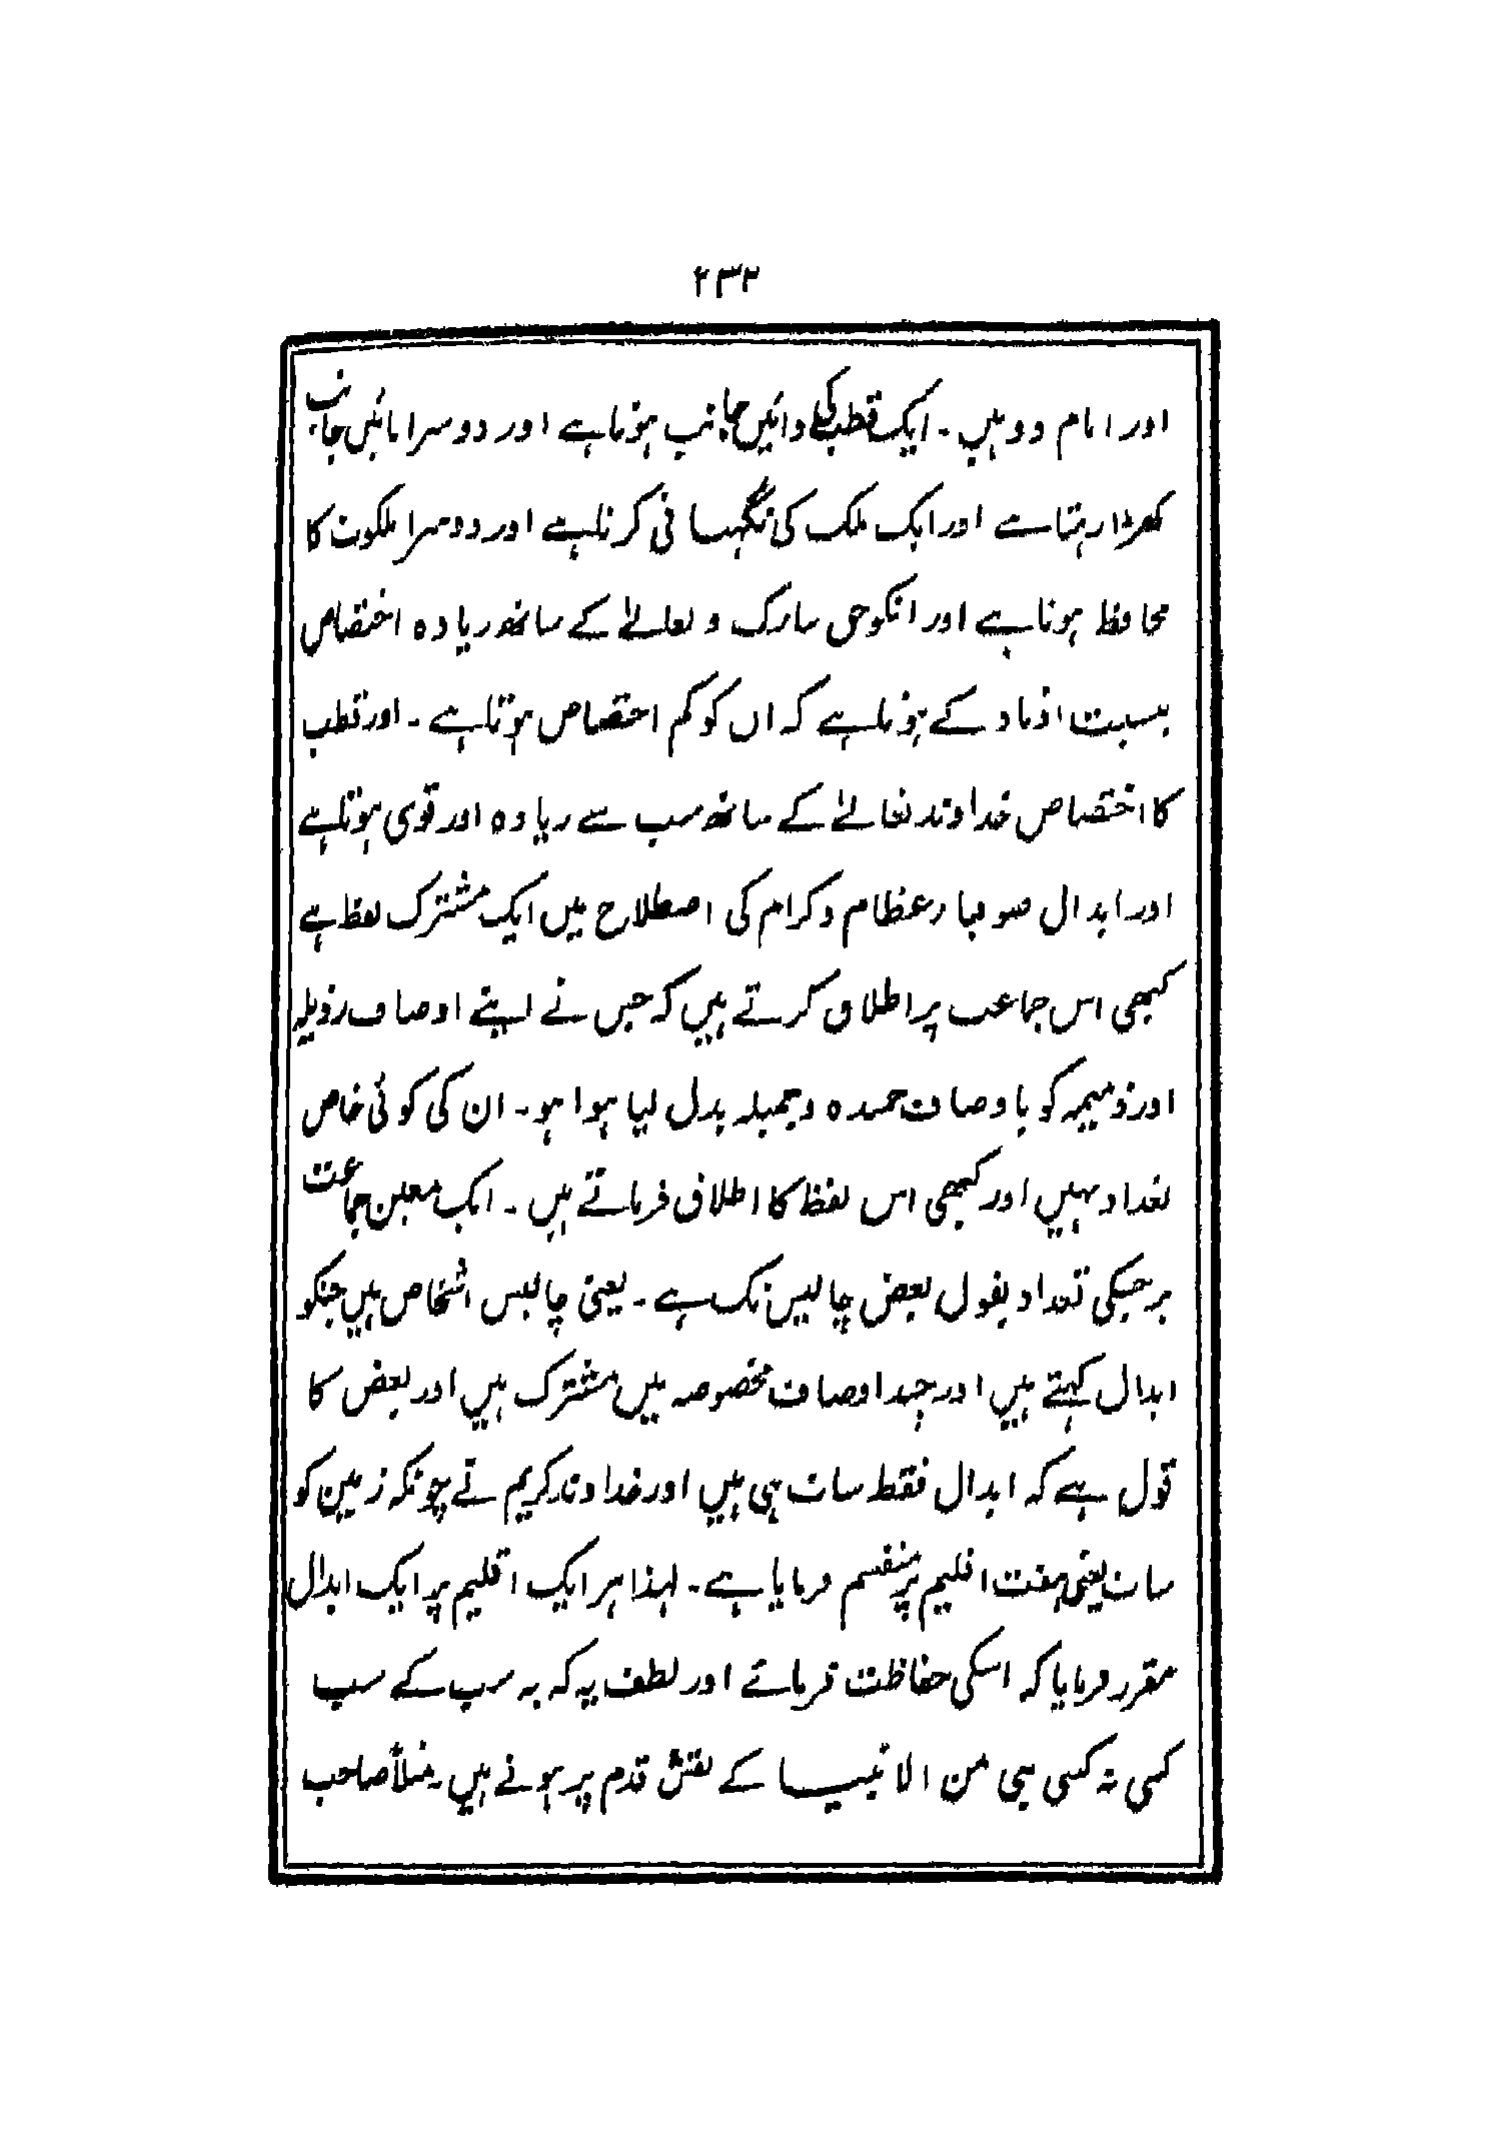 ۲۳۲
اور امام دو ہیں ۔ ایک قطب کی دائیں جانب ہوتا ہے اور دوسرا بائیں جانب
کھڑا رہتا ہے اور ایک ملک کی نگہبانی کرتا ہے اور دوسرا ملکوت کا
محافظ ہوتا ہے اور انکو حق تبارک و تعالےٰ کے ساتھ زیادہ اختصاص
بنسبت اوتاد کے ہوتا ہے کہ ان کو کم اختصاص ہوتا ہے ۔ اور قطب
کا اختصاص خداوند تعالےٰ کے ساتھ سب سے زیادہ اور قوی ہوتا ہے
اور ابدال صوفیاء عظام و کرام کی اصطلاح میں ایک مشترک لفظ ہے
کبھی اس جماعت پر اطلاق کرتے ہیں کہ جس نے اپنے اوصاف رذیلہ
اور ذمیمہ کو باوصاف حمیدہ و جمیلہ بدل لیا ہوا ہو ۔ ان کی کوئی خاص
تعداد نہیں اور کبھی اس لفظ کا اطلاق فرماتے ہیں ۔ ایک معین جماعت
پر جسکی تعداد بقول بعض چالیس تک ہے ۔ یعنی چالیس اشخاص ہیں جنکو
ابدال کہتے ہیں اور چند اوصاف مخصوصہ میں مشترک ہیں اور بعض کا
قول ہے کہ ابدال فقط سات ہی ہیں اور خداوند کریم نے چونکہ زمین کو
سات یعنی ہفت اقلیم پر منقسم فرمایا ہے ۔ لہذا ہر ایک اقلیم پر ایک ابدال
مقرر فرمایا کہ اسکی حفاظت فرمائے اور لطف یہ کہ یہ سب کے سب
کسی نہ کسی نبی من الانبیا کے نقش قدم پر ہوتے ہیں ۔ مثلاً صاحب